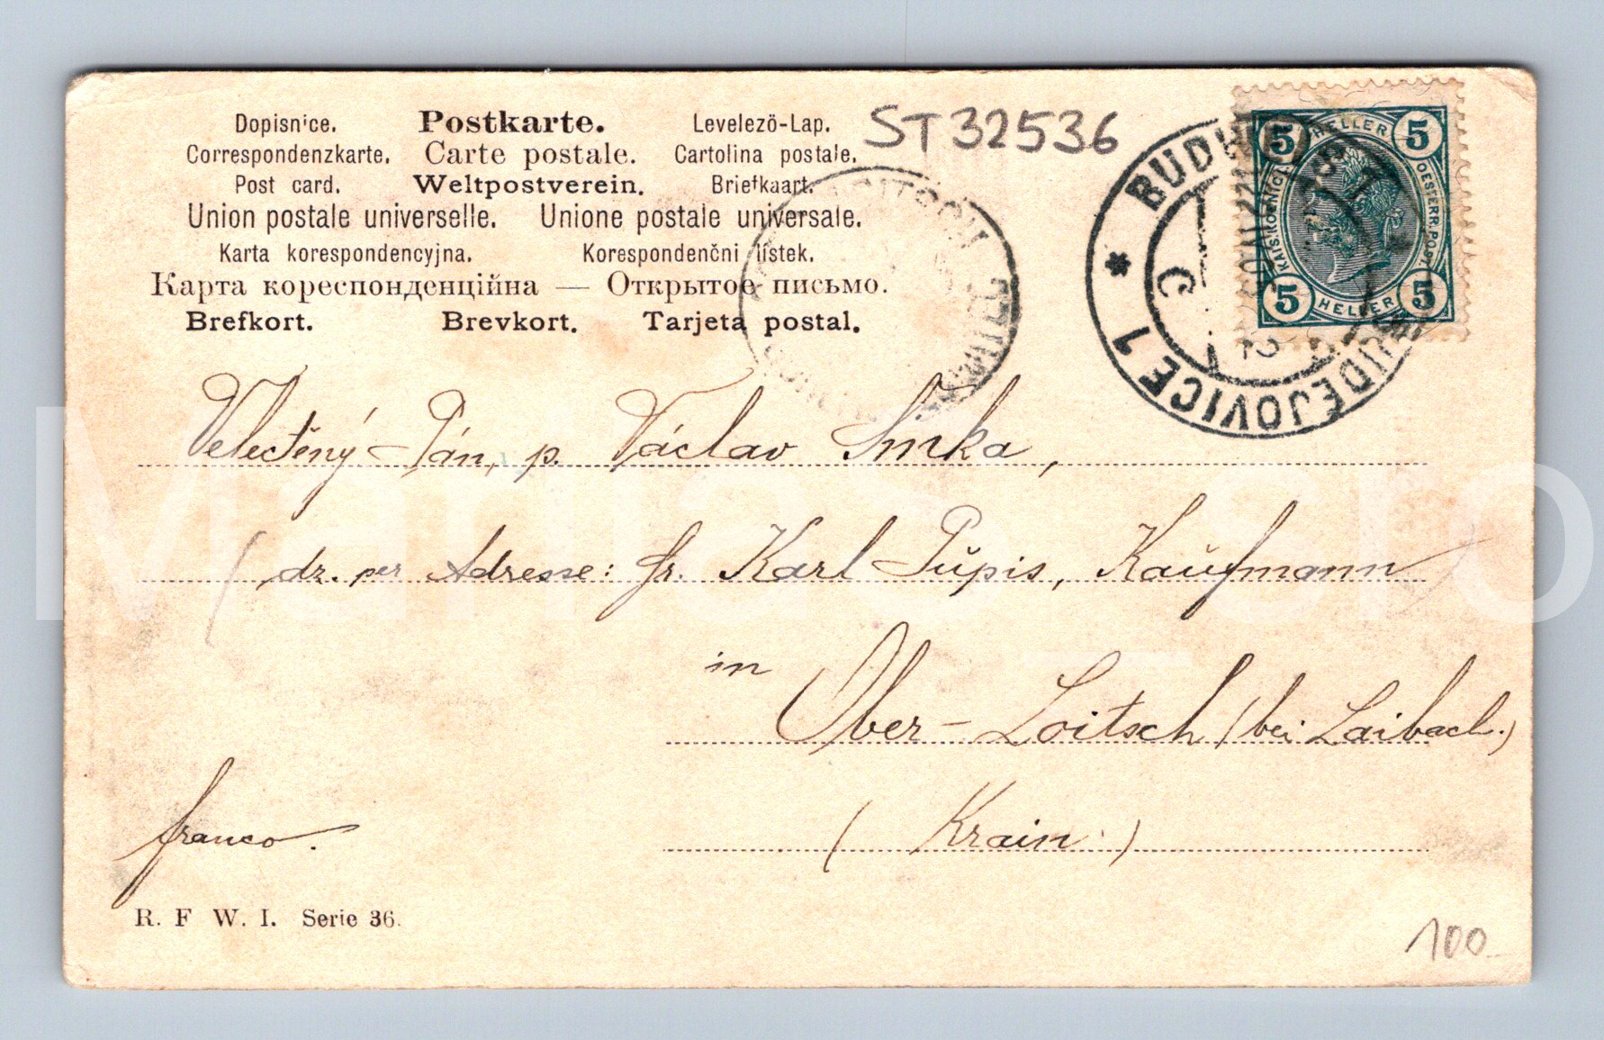 Dopisnice. Postkarte. Levelező-Lap.
Correspondenzkarte. Carte postale. Cartolina postale.
Post card. Weltpostverein. Briefkaart.
Union postale universelle. Unione postale universale.
Karta korespondencyjna. Korespondenčni listek.
Карта кореспонденційна — Открытое письмо.
Brefkort. Brevkort. Tarjeta postal.
ST32536
5 HELLER 5
KAIS. KOENIGL. OESTERR. POST.
5 HELLER 5
* BUDW
BUDEJOVICE 1
C
Velectěný Pán, p. Václav Smka,
(dz. per Adresse: Hr. Karl Pŭpis, Kaŭfmann)
in
Ober-Loitsch (bei Laibach.)
(Krain.)
franco.
R. F W. I. Serie 36.
100